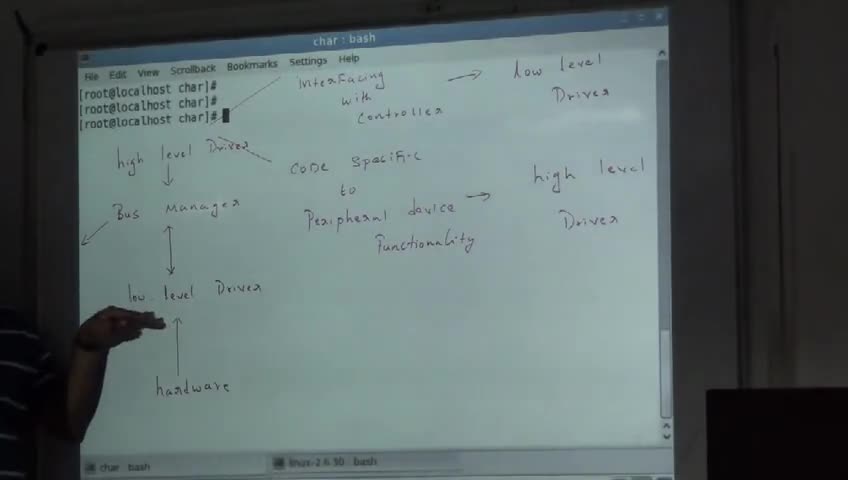 char : bash
File Edit View Scrollback Bookmarks Settings Help
[root@localhost char]#
[root@localhost char]#
[root@localhost char]#
Interfacing
with
Controller
low level
Driver
high level Driver
Bus Manager
low level Driver
hardware
CODE Specific
to
Peripheral device
Functionality
high level
Driver
char bash
linux-2.6.30 bash